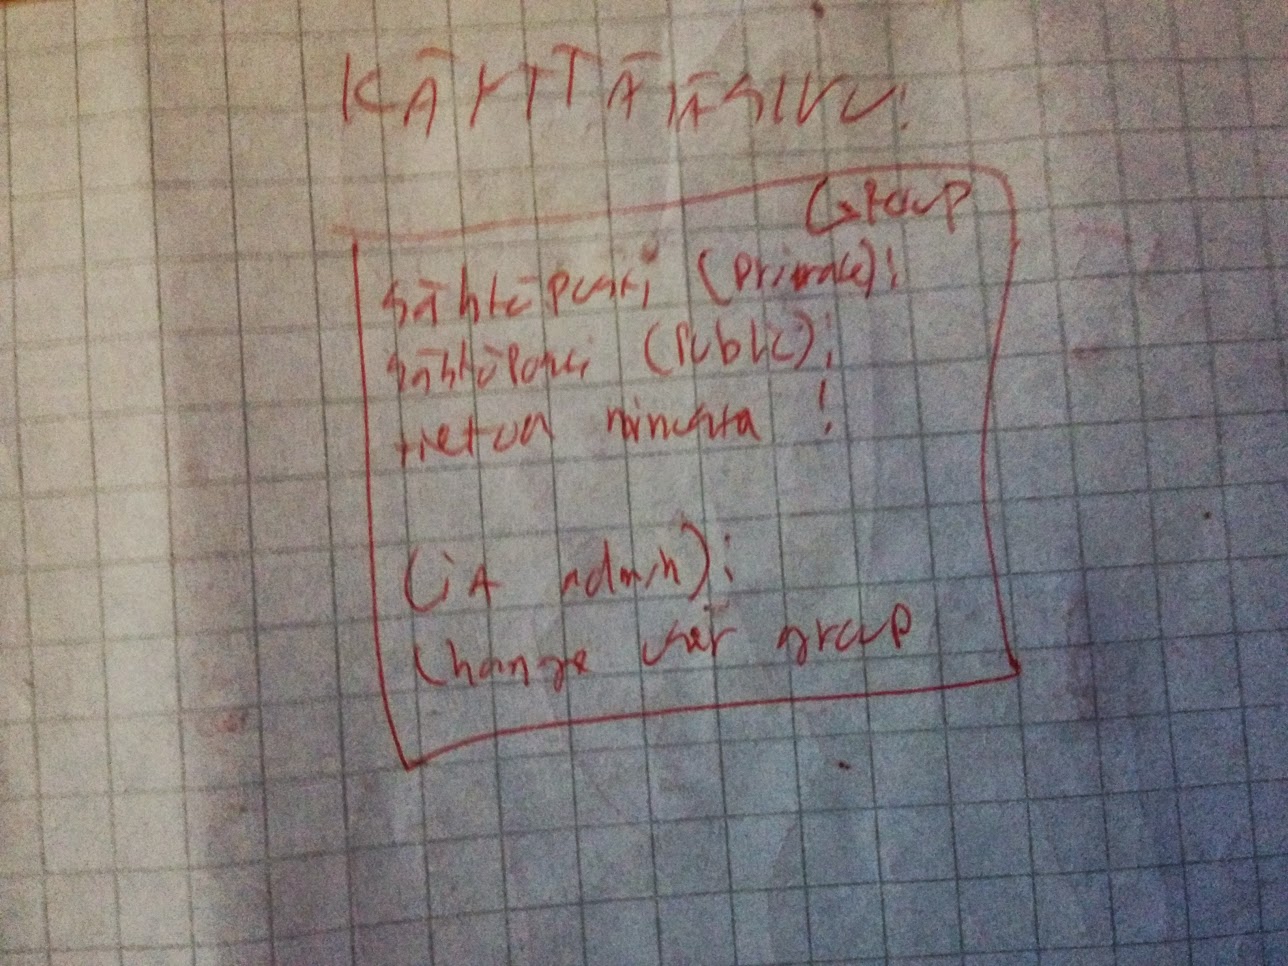 KÄYTTÄJÄSIVU:
Group
sähköposti (private):
sähköposti (public):
tietoa minusta :
(if admin):
change user group